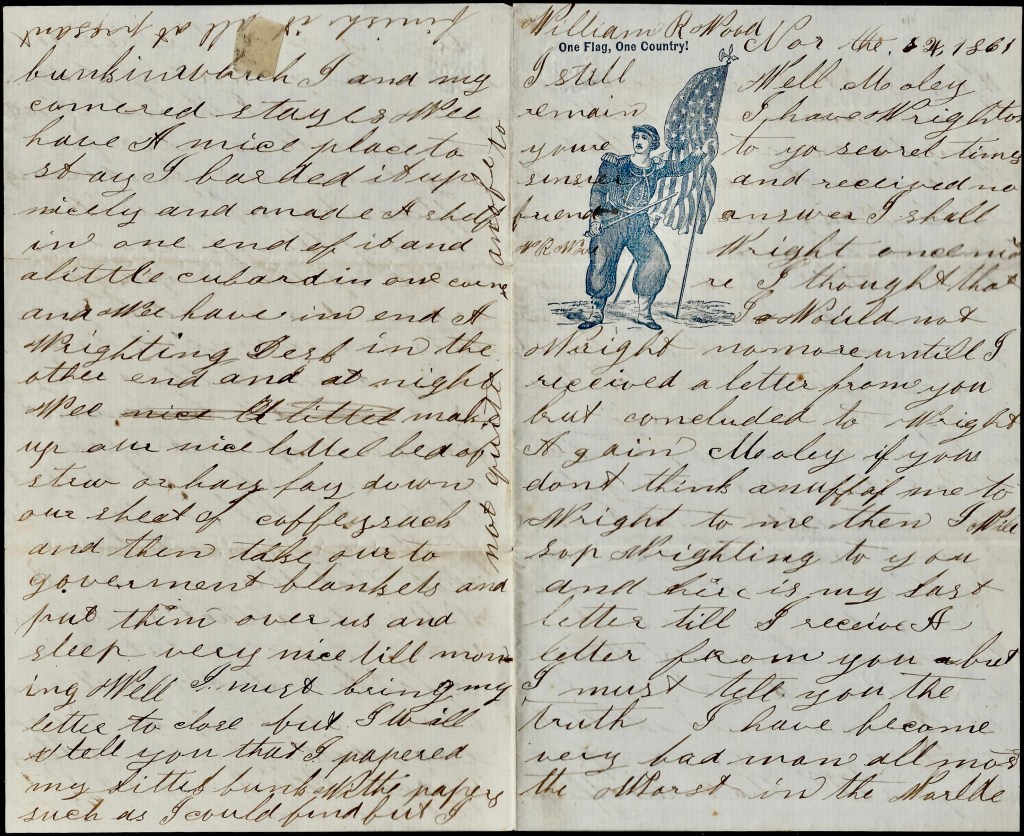 One Flag, One Country!
Nov the 24, 1861
Well Moley
I have Wrighton
to yo sevrel times
and received no
answer I shall
Wright once mo
re I thought that
I Would not
Wright no more untill I
received a letter from you
but concluded to Wright
A gain Moley if you
dont think anuff of me to
Wright to me then I Will
sop Wrighting to you
and hire is my last
letter till I receive A
letter from you but
I must tell you the
truth I have become
very bad man all most
the Worst in the Worlde
bunk in which I and my
comered stayes Wee
have A nice place to
stay I barded it up
nicely and made A shelf
in one end of it and
a little cubard in one corne
and Wee have im end A
Wrighting Desk in the
other end and at night
Wee nice A littel make
up our nice littel bed of
straw or hay lay down
our sheet of coffeysuch
and then take our to
goverment blankets and
put them over us and
sleep very nice till morn
ing Well I must bring my
letter to close but I Will
tell you that I papered
my littel bunk With papers
such as I could find but I
not quite anofe to
finish it all at present
I still
remain
youre
sinsier
friend
W R Wood
William R Wood